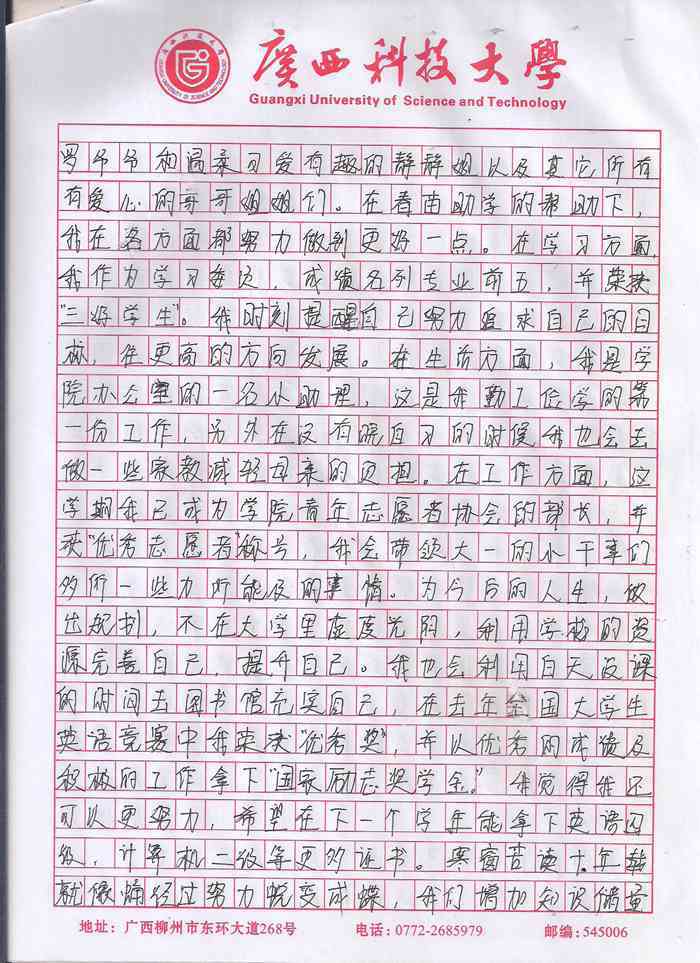 廣西科技大學
Guangxi University of Science and Technology
罗爷爷和温柔可爱有趣的静静姐以及其它所有
有爱心的哥哥姐姐们。在春苗助学的帮助下，
我在各方面都努力做到更好一点。在学习方面，
我作为学习委员，成绩名列专业前五，并荣获
“三好学生”。我时刻提醒自己努力追求自己的目
标，往更高的方向发展。在生活方面，我是学
院办公室的一名小助理，这是我勤工俭学的第
一份工作，另外在没有晚自习的时候我也会去
做一些家教减轻母亲的负担。在工作方面，这
学期我已成为学院青年志愿者协会的部长，并
获“优秀志愿者”称号，我会带领大一的小干事们
多所一些力所能及的事情。为今后的人生，做
出规划，不在大学里虚度光阴，利用学校的资
源完善自己，提升自己。我也会利用白天没课
的时间去图书馆充实自己，在去年全国大学生
英语竞赛中我荣获“优秀奖”，并以优秀的成绩及
积极的工作拿下“国家励志奖学金。”我觉得我还
可以更努力，希望在下一个学年能拿下英语四
级，计算机二级等更多证书。寒窗苦读十年载
就像蛹经过努力蜕变成蝶，我们增加知识储量
地址：广西柳州市东环大道268号 电话：0772-2685979 邮编：545006